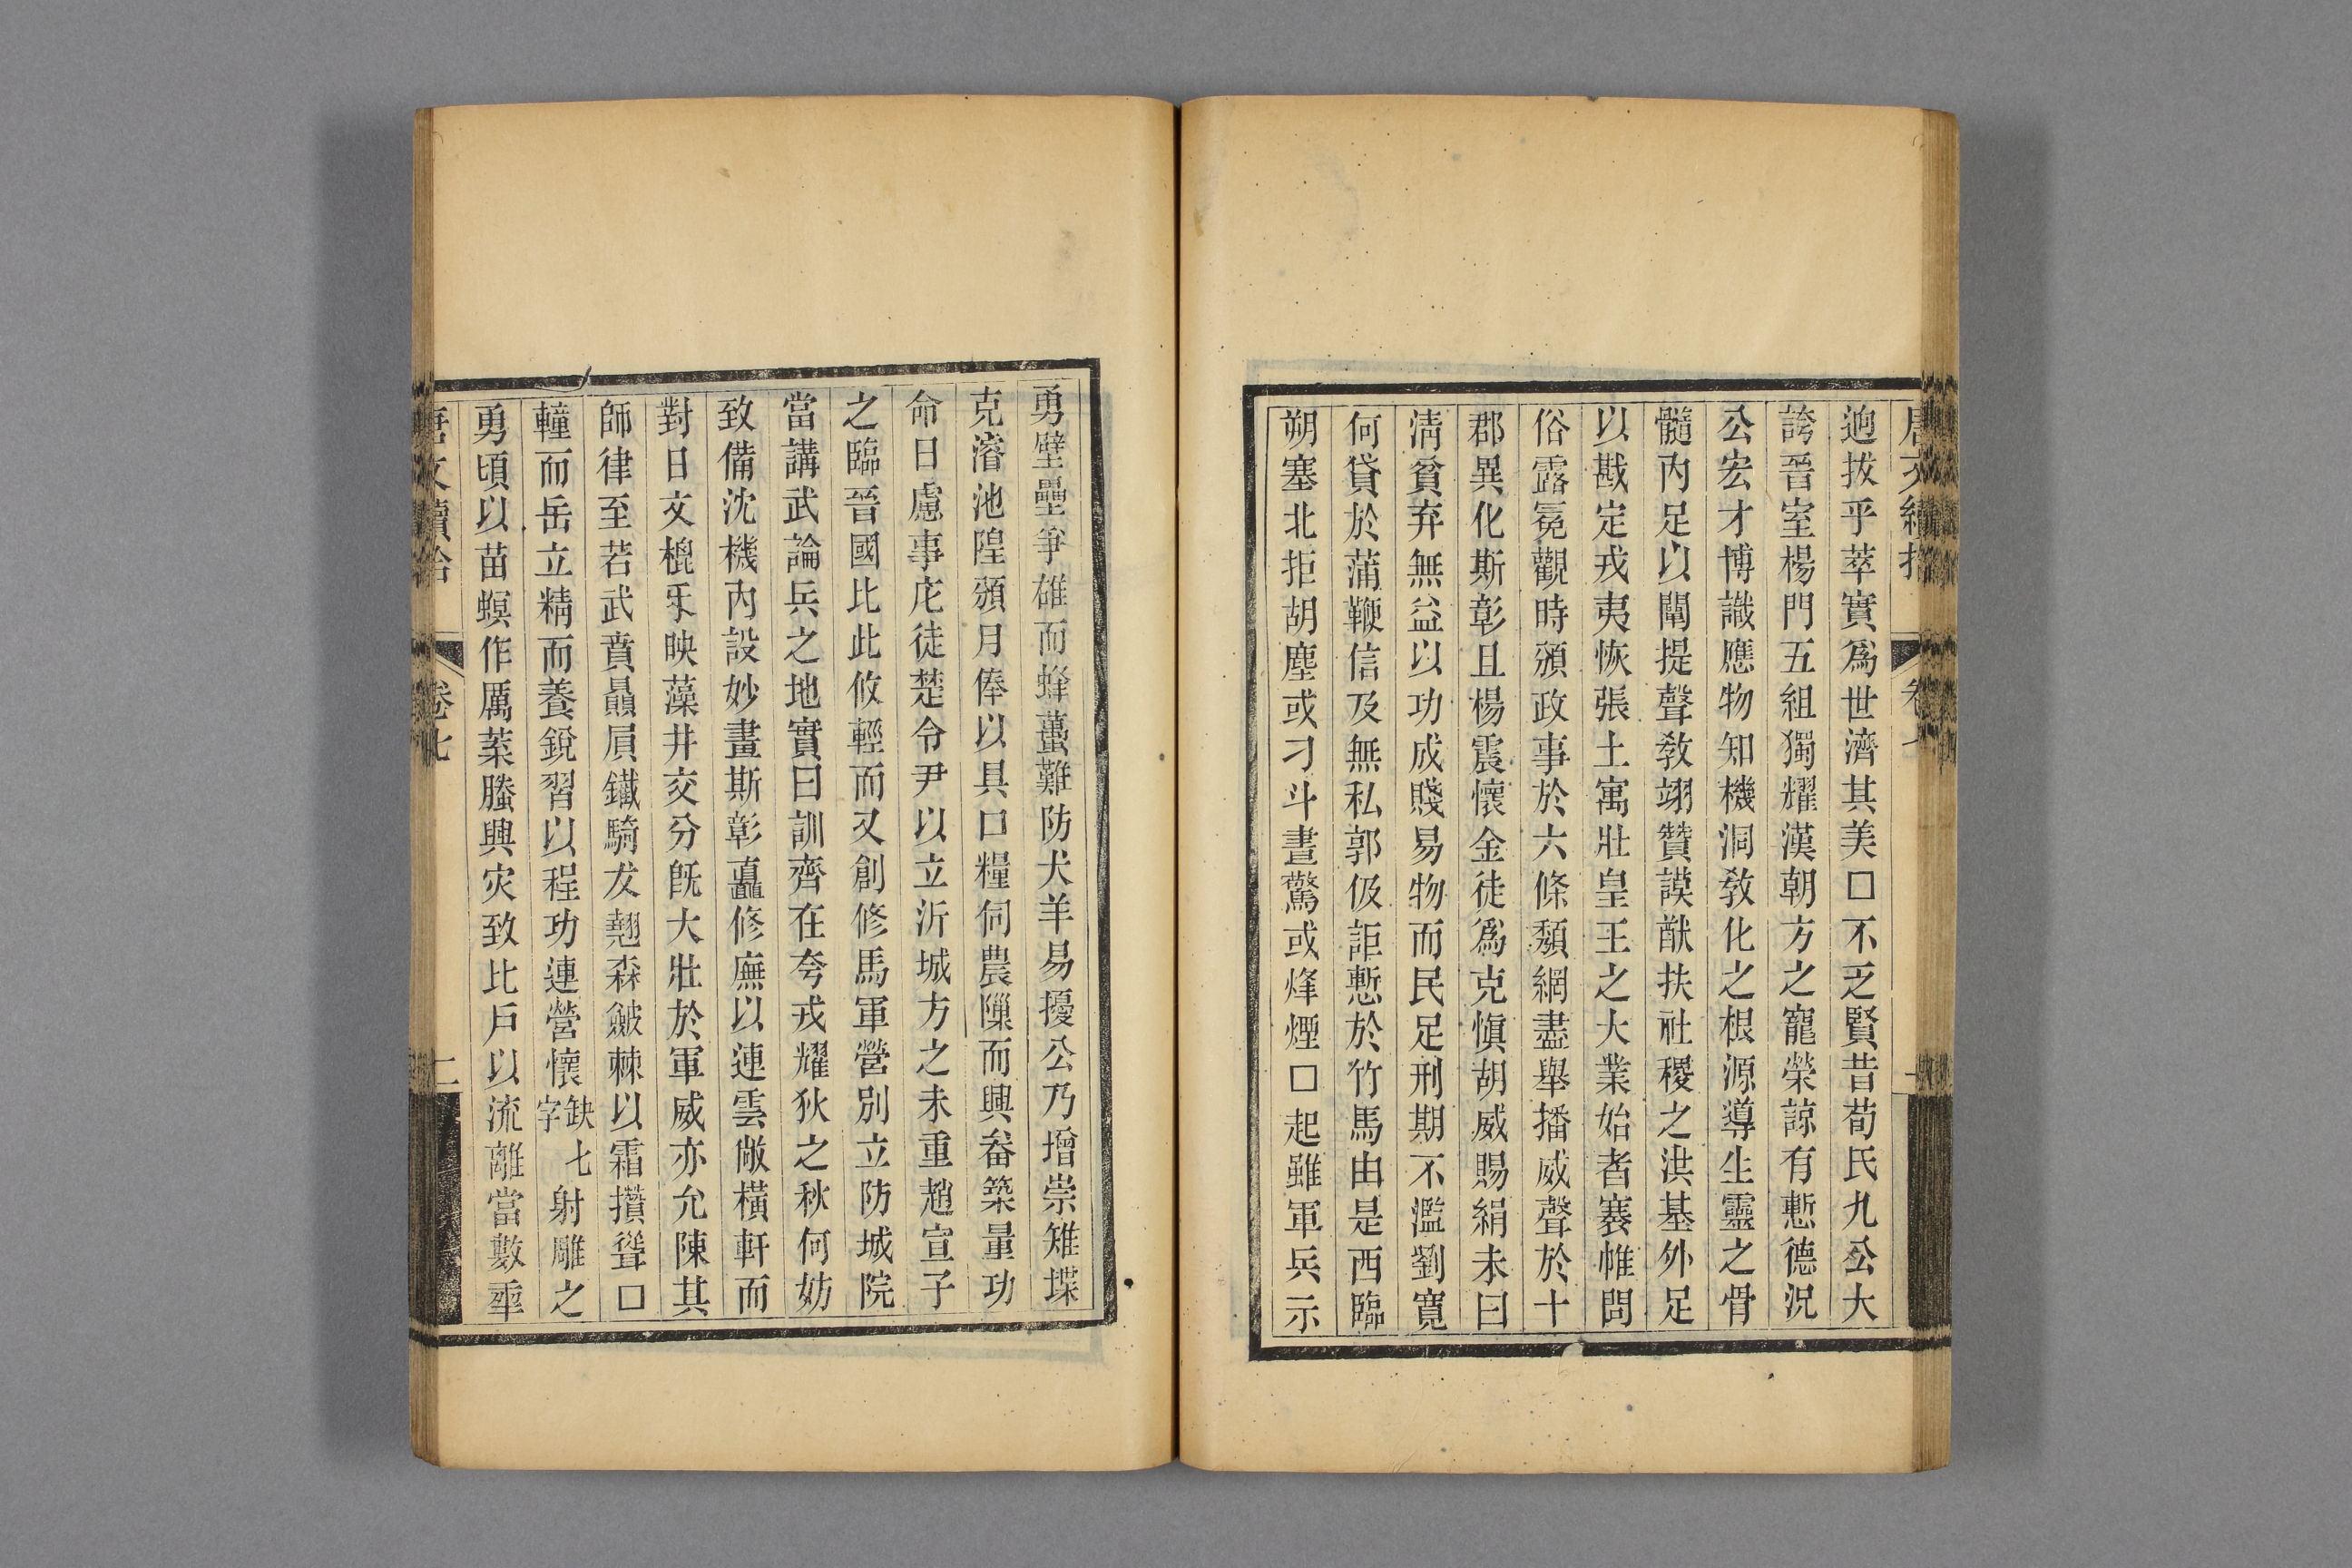 迥拔乎萃實爲世濟其美□不乏賢昔荀氏九公大
誇晉室楊門五組獨耀漢朝方之寵榮諒有慙德況
公宏才博識應物知機洞敎化之根源導生靈之骨
髓內足以闡提聲敎翊贊謨猷扶社稷之洪基外足
以戡定戎夷恢張土寓壯皇王之大業始者褰帷問
俗露冕觀時頒政事於六條頽綱盡舉播威聲於十
郡異化斯彰且楊震懷金徒爲克愼胡威賜絹未曰
淸貧弃無益以功成賤易物而民足刑期不濫劉寬
何貸於蒲鞭信及無私郭伋詎慙於竹馬由是西臨
朔塞北拒胡塵或刁斗晝驚或烽煙□起雖軍兵示
勇壁壘爭雄而蜂蠆難防犬羊易擾公乃增崇雉堞
克濬池隍頒月俸以具口糧伺農隟而興畚築量功
命日慮事庀徒楚令尹以立沂城方之未重趙宣子
之臨晉國比此攸輕而又創修馬軍營別立防城院
當講武論兵之地實曰訓齊在夸戎耀狄之秋何妨
致備沈機內設妙畫斯彰矗修廡以連雲敞橫軒而
對日文㮰釆映藻井交分旣大壯於軍威亦允陳其
師律至若武賁贔屓鐵騎犮翹森皴棘以霜攢聳□
䡴而岳立精而養銳習以程功連營懷缺七字射雕之
勇頃以苗螟作厲菜螣興灾致比戶以流離當數壄
唐文續拾
卷七
二